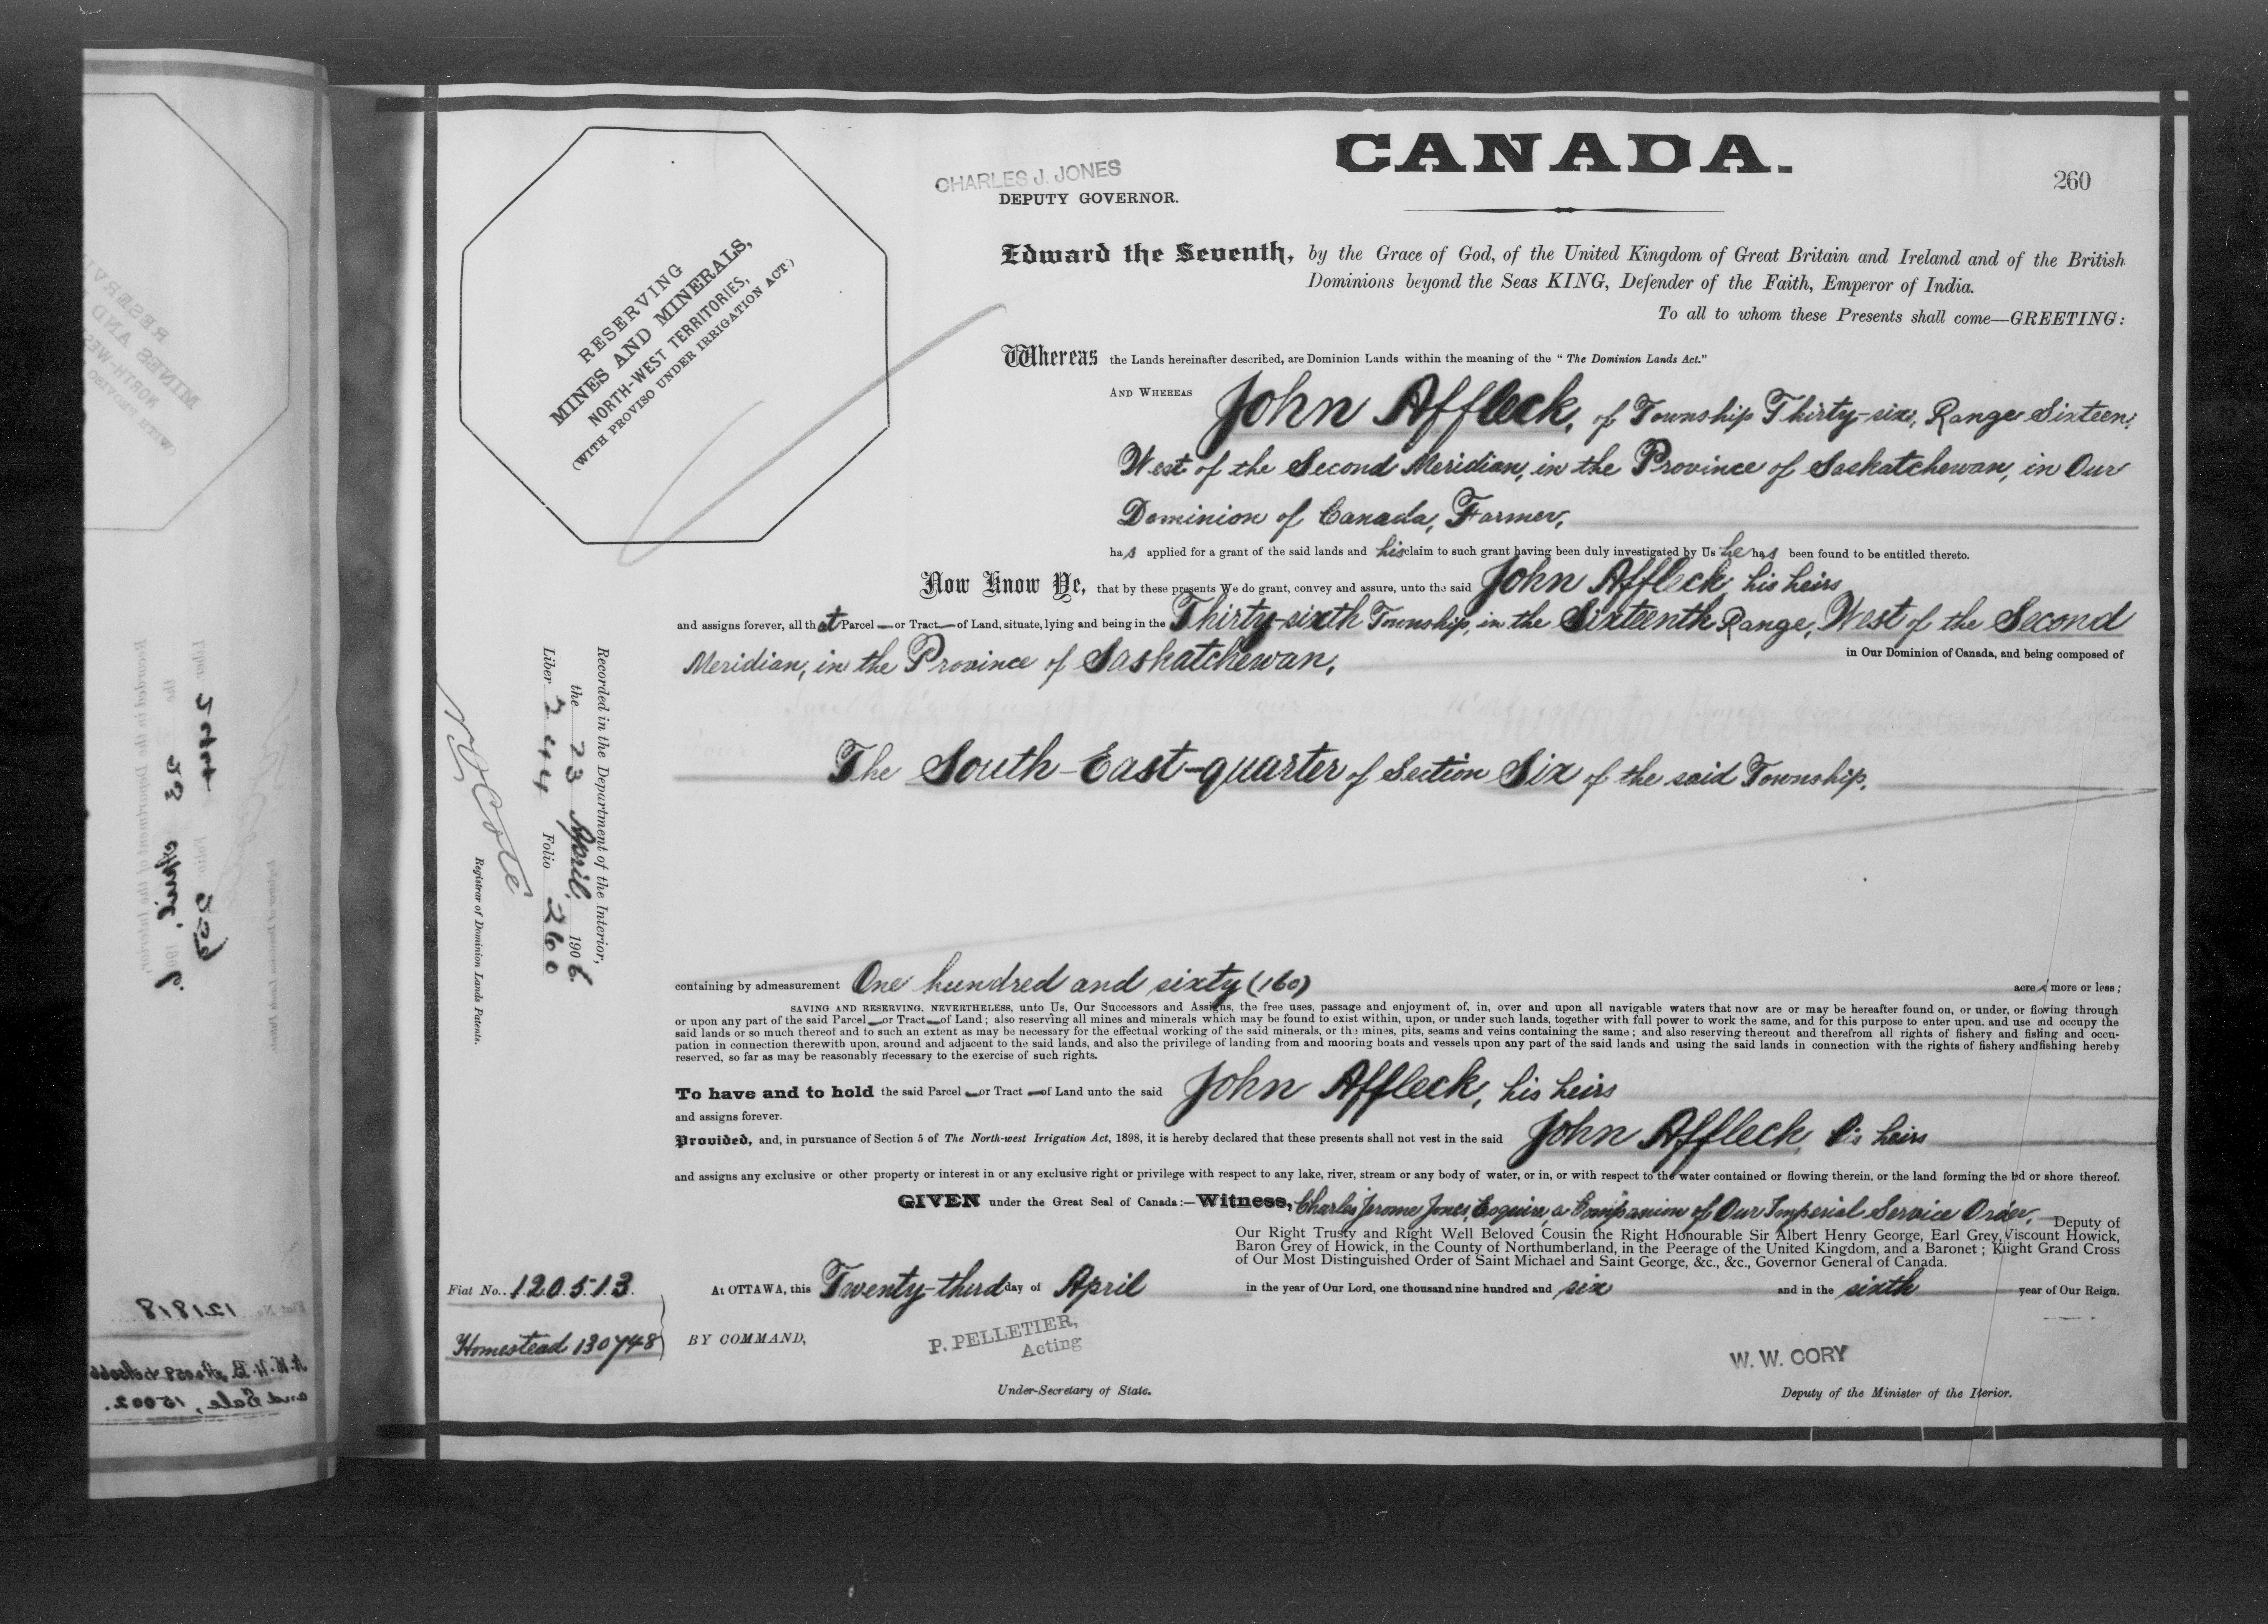 CANADA.
260
CHARLES J. JONES
DEPUTY GOVERNOR.
RESERVING
MINES AND MINERALS,
NORTH-WEST TERRITORIES,
(WITH PROVISO UNDER IRRIGATION ACT.)
Edward the Seventh, by the Grace of God, of the United Kingdom of Great Britain and Ireland and of the British
Dominions beyond the Seas KING, Defender of the Faith, Emperor of India.
To all to whom these Presents shall come—GREETING:
Whereas the Lands hereinafter described, are Dominion Lands within the meaning of the "The Dominion Lands Act."
AND WHEREAS John Affleck, of Township Thirty-six, Range Sixteen,
West of the Second Meridian, in the Province of Saskatchewan, in Our
Dominion of Canada, Farmer,
has applied for a grant of the said lands and his claim to such grant having been duly investigated by Us he has been found to be entitled thereto.
Now Know Ye, that by these presents We do grant, convey and assure, unto the said John Affleck, his heirs
and assigns forever, all that Parcel — or Tract — of Land, situate, lying and being in the Thirty-sixth Township, in the Sixteenth Range, West of the Second
Meridian, in the Province of Saskatchewan, in Our Dominion of Canada, and being composed of
The South-East-quarter of Section Six of the said Township.
containing by admeasurement One hundred and sixty (160) acres more or less;
SAVING AND RESERVING, NEVERTHELESS, unto Us, Our Successors and Assigns, the free uses, passage and enjoyment of, in, over and upon all navigable waters that now are or may be hereafter found on, or under, or flowing through
or upon any part of the said Parcel — or Tract — of Land; also reserving all mines and minerals which may be found to exist within, upon, or under such lands, together with full power to work the same, and for this purpose to enter upon, and use and occupy the
said lands or so much thereof and to such an extent as may be necessary for the effectual working of the said minerals, or the mines, pits, seams and veins containing the same; and also reserving thereout and therefrom all rights of fishery and fishing and occu-
pation in connection therewith upon, around and adjacent to the said lands, and also the privilege of landing from and mooring boats and vessels upon any part of the said lands and using the said lands in connection with the rights of fishery and fishing hereby
reserved, so far as may be reasonably necessary to the exercise of such rights.
To have and to hold the said Parcel — or Tract — of Land unto the said John Affleck, his heirs
and assigns forever.
Provided, and, in pursuance of Section 5 of The North-west Irrigation Act, 1898, it is hereby declared that these presents shall not vest in the said John Affleck, his heirs
and assigns any exclusive or other property or interest in or any exclusive right or privilege with respect to any lake, river, stream or any body of water, or in, or with respect to the water contained or flowing therein, or the land forming the bed or shore thereof.
GIVEN under the Great Seal of Canada:—Witness, Charles Jerome Jones, Esquire, a Companion of Our Imperial Service Order, Deputy of
Our Right Trusty and Right Well Beloved Cousin the Right Honourable Sir Albert Henry George, Earl Grey, Viscount Howick,
Baron Grey of Howick, in the County of Northumberland, in the Peerage of the United Kingdom, and a Baronet; Knight Grand Cross
of Our Most Distinguished Order of Saint Michael and Saint George, &c., &c., Governor General of Canada.
At OTTAWA, this Twenty-third day of April in the year of Our Lord, one thousand nine hundred and six and in the sixth year of Our Reign.
BY COMMAND,
P. PELLETIER,
Acting
Under-Secretary of State.
W. W. CORY
Deputy of the Minister of the Interior.
Fiat No. 120513
Homestead 130748
Recorded in the Department of the Interior,
the 23 April, 1906.
Liber 244 Folio 260
N O Coté
Registrar of Dominion Lands Patents.